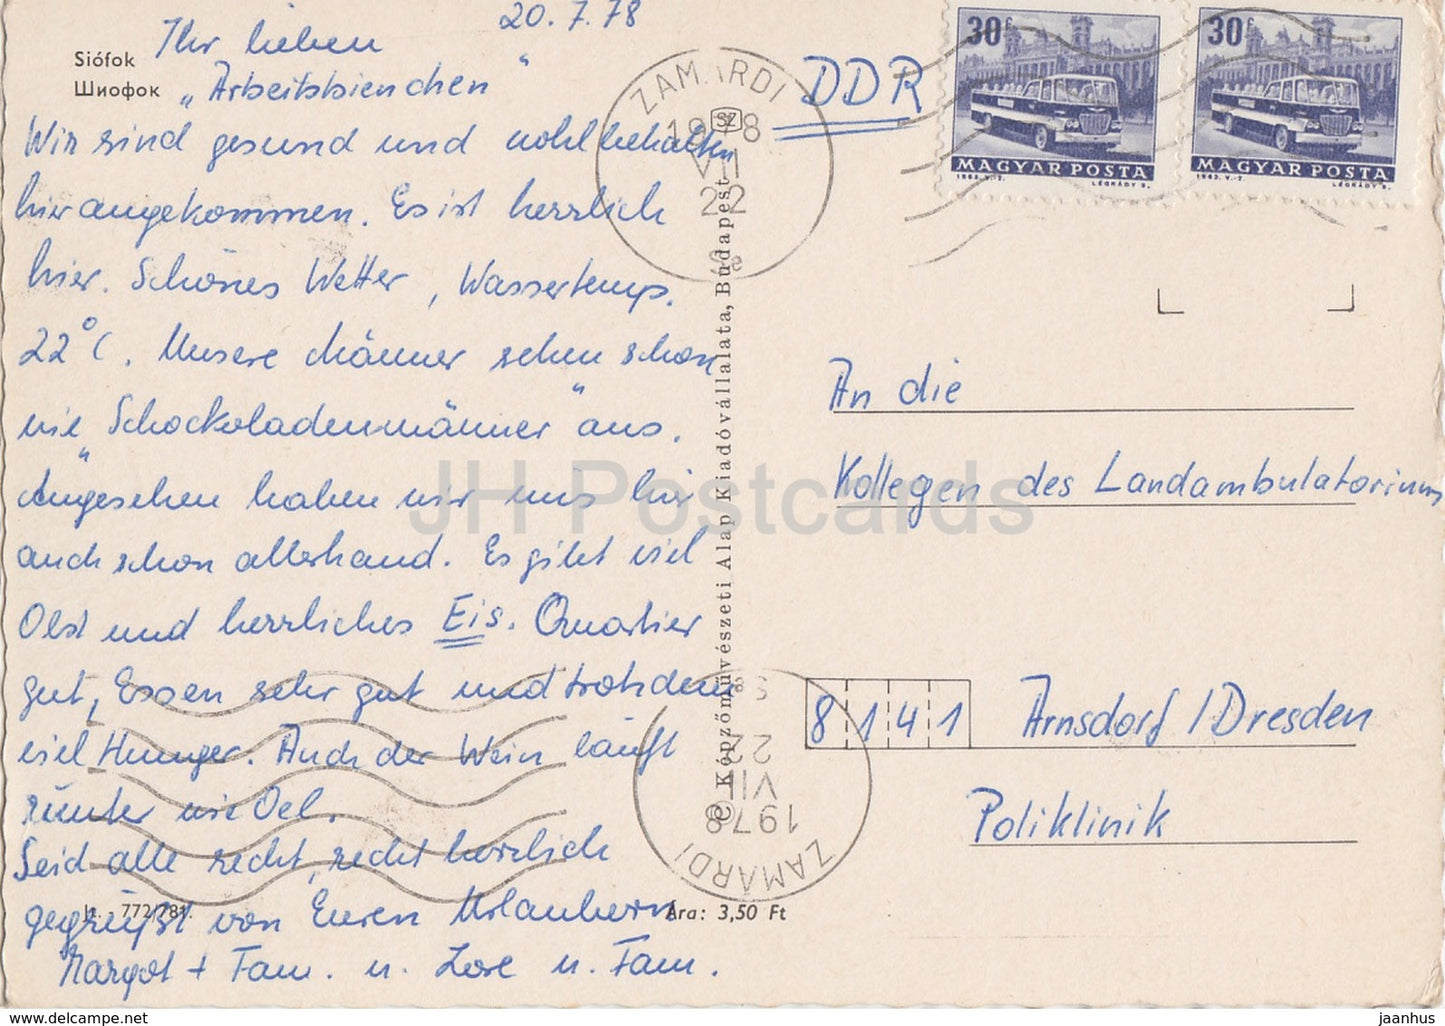 20.7.78
Siófok
Шиофок
Ihr lieben
„Arbeitsbienchen"
Wir sind gesund und wohlbehalten
hier angekommen. Es ist herrlich
hier. Schönes Wetter, Wassertemp.
22°C. Unsere Männer sehen schon
wie „Schockoladenmänner" aus.
Angesehen haben wir uns hier
auch schon allerhand. Es gibt viel
Obst und herrliches Eis. Quartier
gut, Essen sehr gut und trotzdem
viel Hunger. Auch der Wein läuft
runter wie Oel.
Seid alle recht, recht herzlich
gegrüßt von Euren Urlaubern
Margot + Fam. u. Lore u. Fam.
772/781.
Ára: 3,50 Ft
© Képzőművészeti Alap Kiadóvállalata, Budapest
SZ
ZAMÁRDI
1978
VII
22
ZAMÁRDI
1978
VII
22
DDR
30f
MAGYAR POSTA
1963. V.-2.
LÉGRÁDY S.
30f
MAGYAR POSTA
1963. V.-2.
LÉGRÁDY S.
An die
Kollegen des Landambulatoriums
8141 Arnsdorf/Dresden
Poliklinik
JH Postcards
www.jhpostcards.com
jaanhus